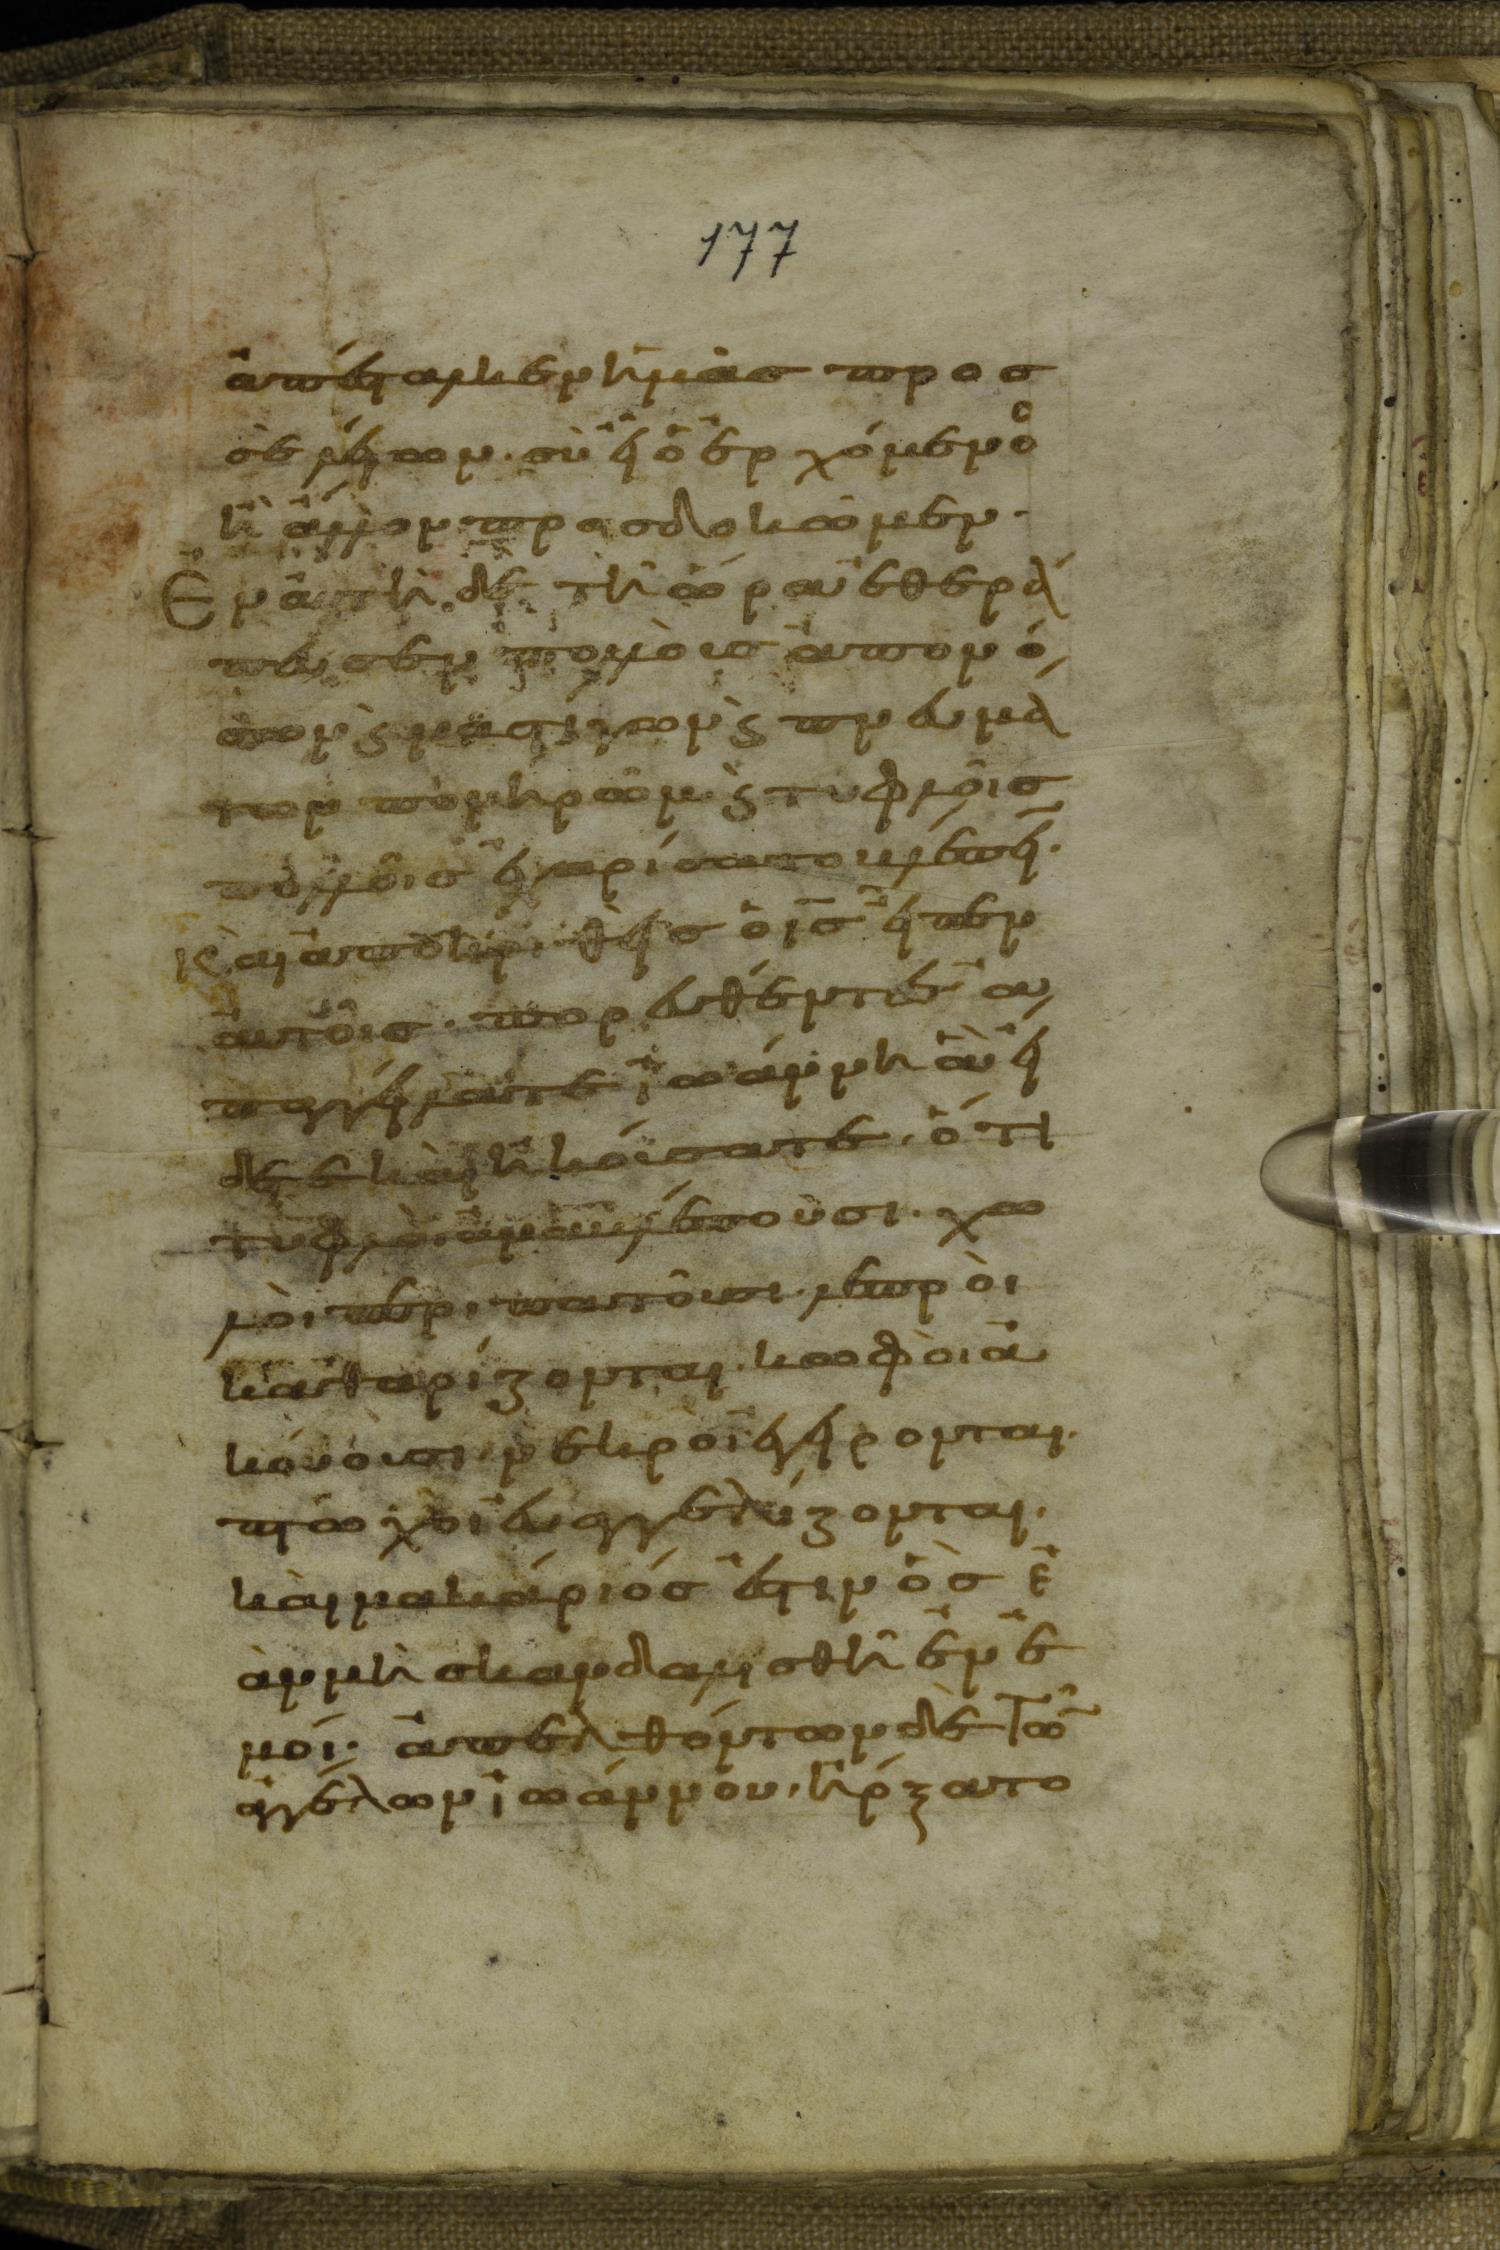 177
ἀπέσταλκεν ἡμᾶς προς
σὲ λέγων. σὺ εἶ ὁ ἐρχόμενος
ἢ ἄλλον προσδοκῶμεν.
Ἐν αὐτῆ δὲ τῆ ὥρα ἐθερά
πευσεν πολλοὺς ἀπο νό
σων ϗ μαστίγων ϗ πνευμά
των πονηρῶν ϗ τυφλοῖς
πολλοῖς ἐχαρίσατο βλέπειν.
καὶ ἀποκριθεὶς ὁ ις εἶπεν
αὐτοῖς. πορευθέντες ἀ
παγγείλατε ἰωάννη ἃ εἴ
δετε καὶ ἠκούσατε. ὅτι
τυφλοὶ ἀναβλέπουσι. χω
λοὶ περιπατοῦσι. λεπροὶ
καθαρίζονται. κωφοὶ ἀ
κούουσι. νεκροὶ ἐγείρονται.
πτωχοὶ εὐαγγελίζονται.
καὶ μακάριός ἐστιν ὃς ἐ
ὰν μὴ σκανδαλισθῆ ἐν ἐ
μοί. ἀπελθόντων δὲ τῶν
ἀγγέλων ἰωάννου. ἤρξατο